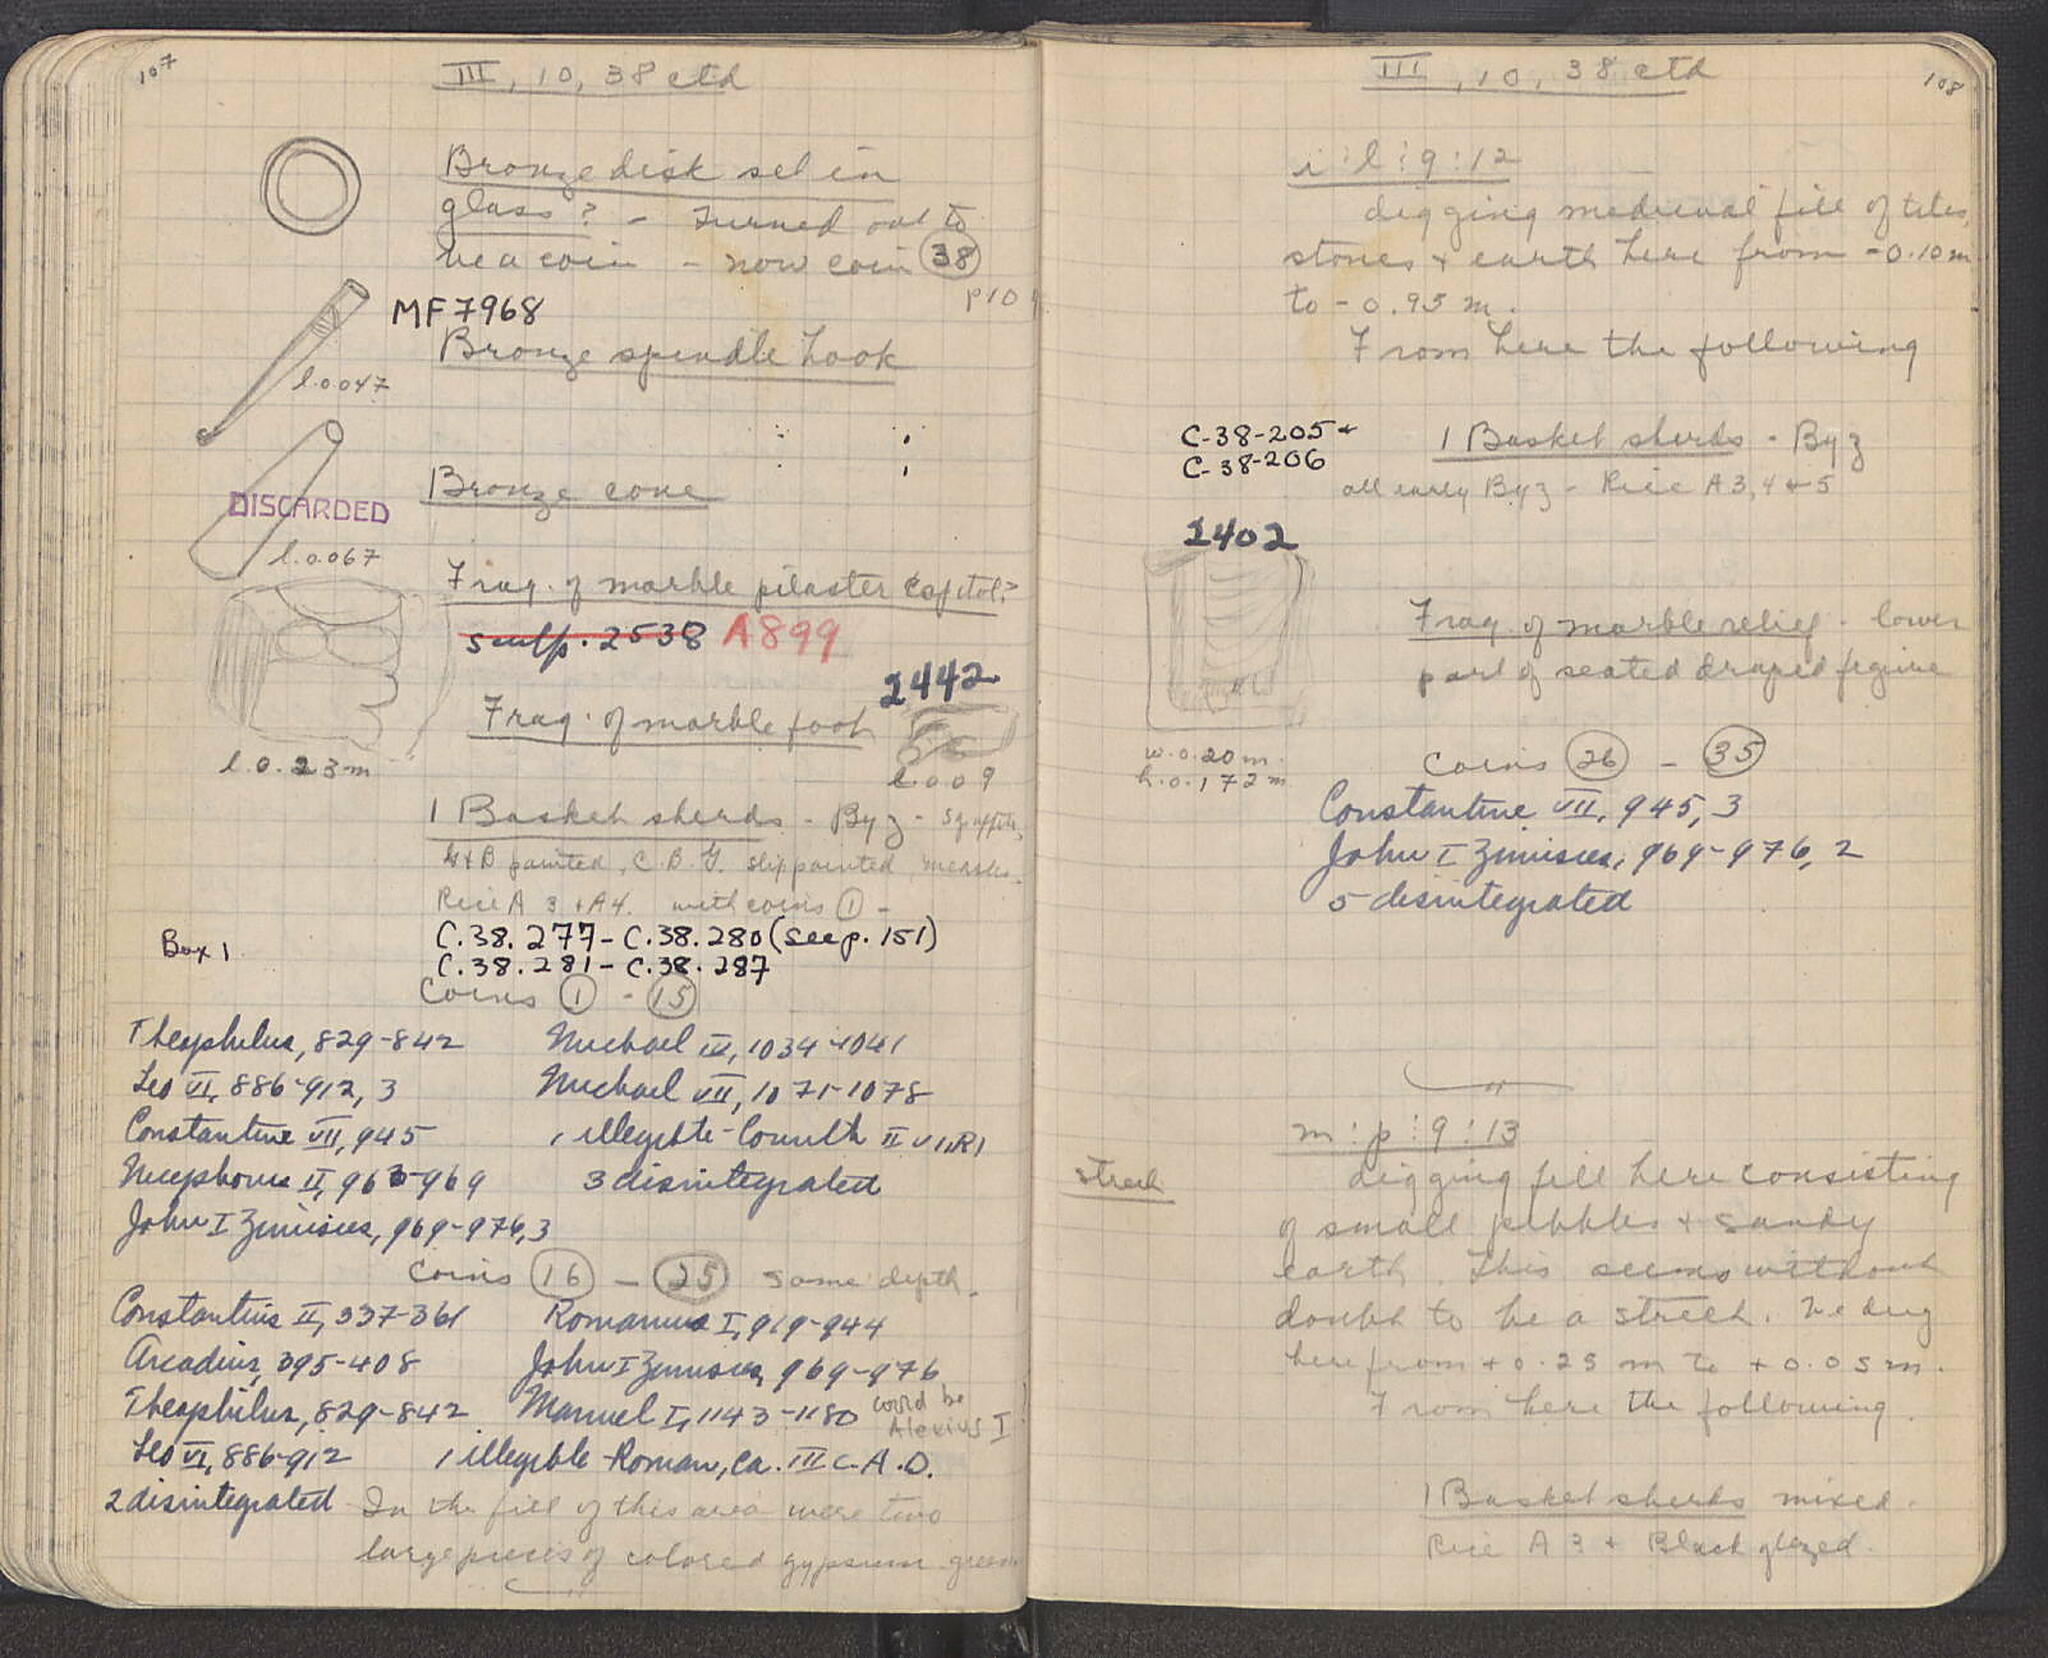 107
III, 10, 38 ctd
Bronze disk set in
glass? - Turned out to
be a coin - now coin 38
p 10
MF 7968
Bronze spindle hook
l. 0.047
Bronze cone
DISCARDED
l. 0.067
Frag. of marble pilaster capital?
Sculp. 2538 A899
2442
Frag. of marble foot
l. 0.23 m
l. 0.09
1 Basket sherds - Byz - Sgraffito,
G & B painted, C.B.G. slip painted, measles.
Rice A 3 & A4. with coins 1 -
C.38.277 - C.38.280 (see p. 151)
Box 1
C.38.281 - C.38.287
Coins 1 - 15
Theophilus, 829-842 Michael IV, 1034-1041
Leo VI, 886-912, 3 Michael VII, 1071-1078
Constantine VII, 945 1 illegible - Corinth II
Nicephorus II, 963-969 3 disintegrated
John I Zimisces, 969-976, 3
Coins 16 - 25 same depth.
Constantius II, 337-361 Romanus I, 919-944
Arcadius, 395-408 John I Zimisces, 969-976
Theophilus, 829-842 Manuel I, 1143-1180 could be Alexius I
Leo VI, 886-912 1 illegible - Roman, ca. III c. A.D.
2 disintegrated In the fill of this area were two
large pieces of colored gypsum green
108
III, 10, 38 ctd
i : l : 9 : 12
digging medieval fill of tiles,
stones & earth here from -0.10 m
to -0.95 m.
From here the following
C-38-205 +
C-38-206
1 Basket sherds - Byz
all early Byz - Rice A 3, 4 & 5
2402
Frag. of marble relief - lower
part of seated draped figure
w. 0.20 m.
h. 0.172 m
Coins 26 - 35
Constantine VII, 945, 3
John I Zimisces, 969-976, 2
5 disintegrated
m : p : 9 : 13
Street
digging fill here consisting
of small pebbles & sandy
earth. This seems without
doubt to be a street. We dug
here from +0.25 m to +0.05 m.
From here the following.
1 Basket sherds mixed.
Rice A 3 & Black glazed.